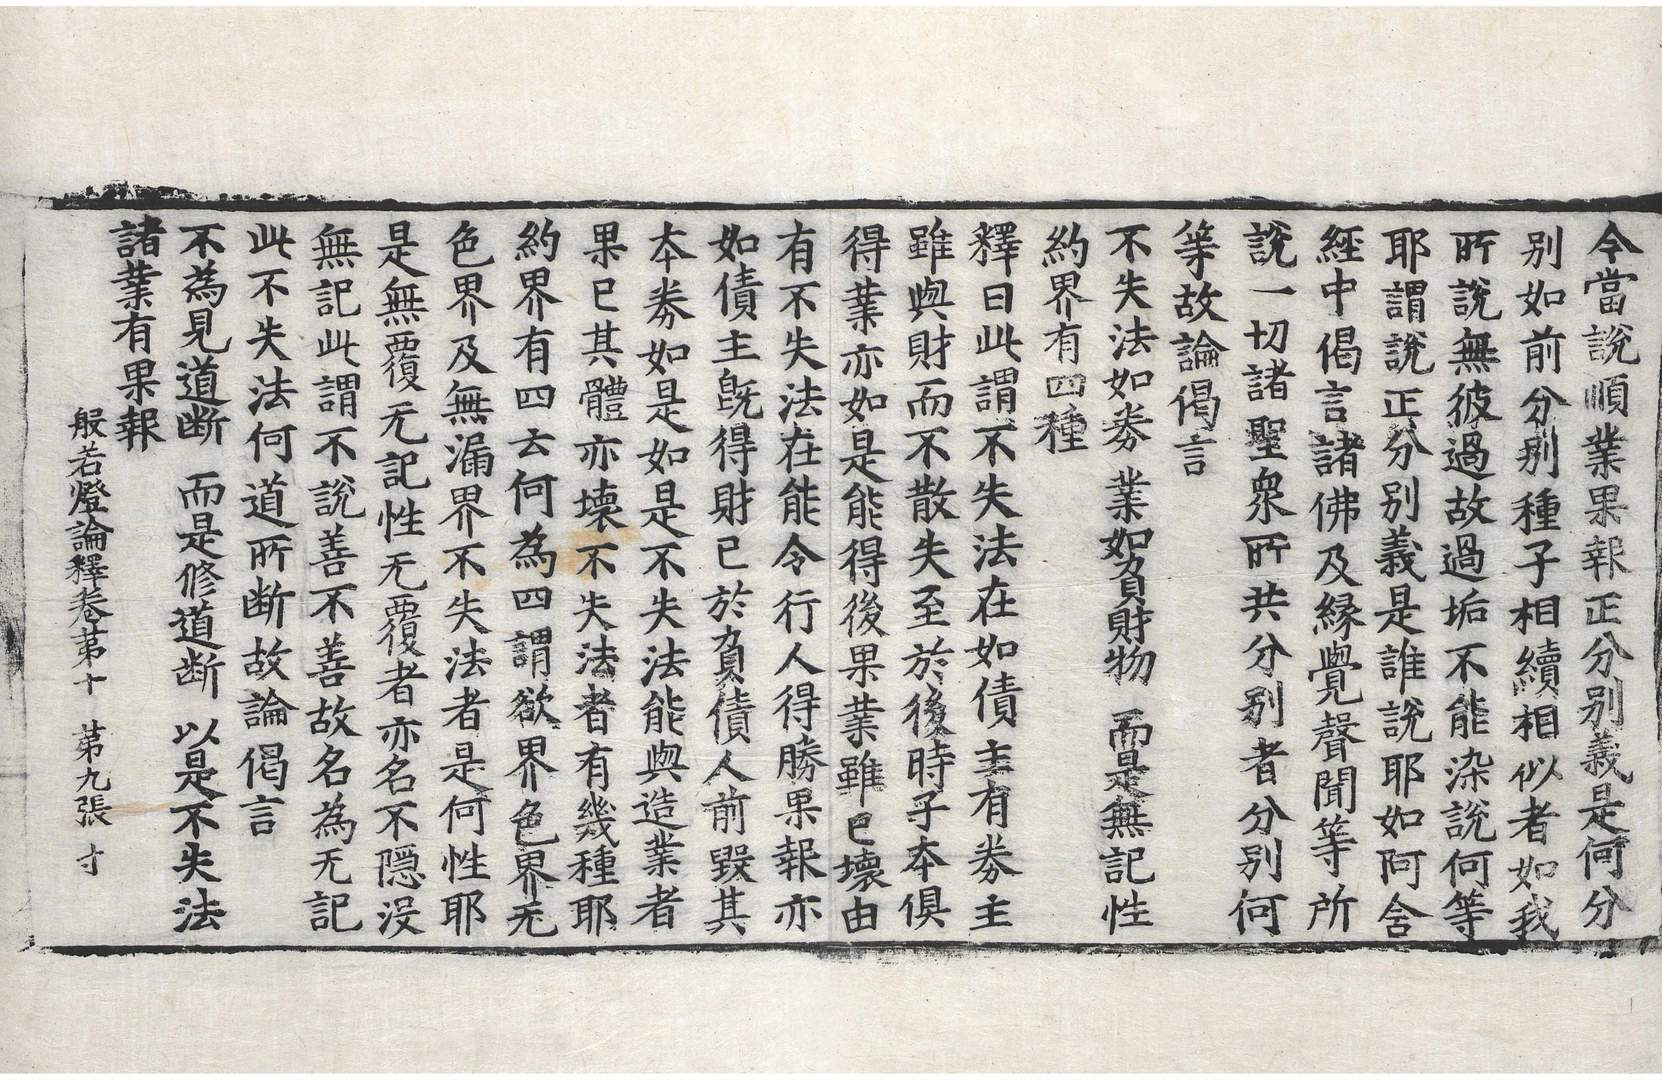 今當說順業果報正分別義是何分
別如前分別種子相續相似者如我
所說無彼過故過垢不能染說何等
耶謂說正分別義是誰說耶如阿含
經中偈言諸佛及緣覺聲聞等所
說一切諸聖衆所共分別者分別何
等故論偈言
不失法如券 業如負財物 而是無記性
約界有四種
釋曰此謂不失法在如債主有券主
雖與財而不散失至於後時子本俱
得業亦如是能得後果業雖已壞由
有不失法在能令行人得勝果報亦
如債主旣得財已於負債人前毀其
本券如是如是不失法能與造業者
果已其體亦壞不失法者有幾種耶
約界有四云何為四謂欲界色界无
色界及無漏界不失法者是何性耶
是無覆无記性无覆者亦名不隱沒
無記此謂不說善不善故名為无記
此不失法何道所断故論偈言
不為見道断 而是修道断 以是不失法
諸業有果報
般若燈論釋卷第十 第九張 寸